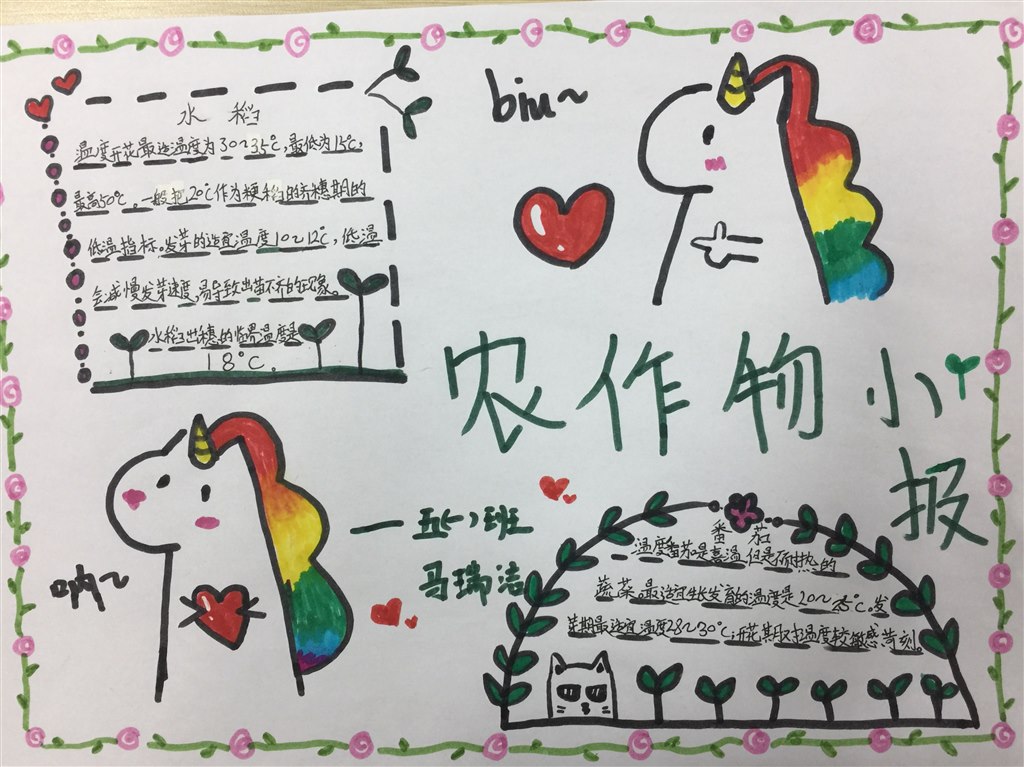 水稻
温度开花最适温度为30~35℃,最低为15℃,
最高50℃。一般把20℃作为粳稻的秀穗期的
低温指标。发芽的适宜温度10~12℃,低温
会减慢发芽速度,易导致出苗不齐的现象。
水稻出穗的临界温度是
18℃。
biu~
农作物小
报
呐~
—五(一)班
马瑞洁
番茄
温度番茄是喜温但是不耐热的
蔬菜。最适宜生长发育的温度是20~25℃。发
芽期最适宜温度28~30℃;开花期对温度较敏感苛刻。